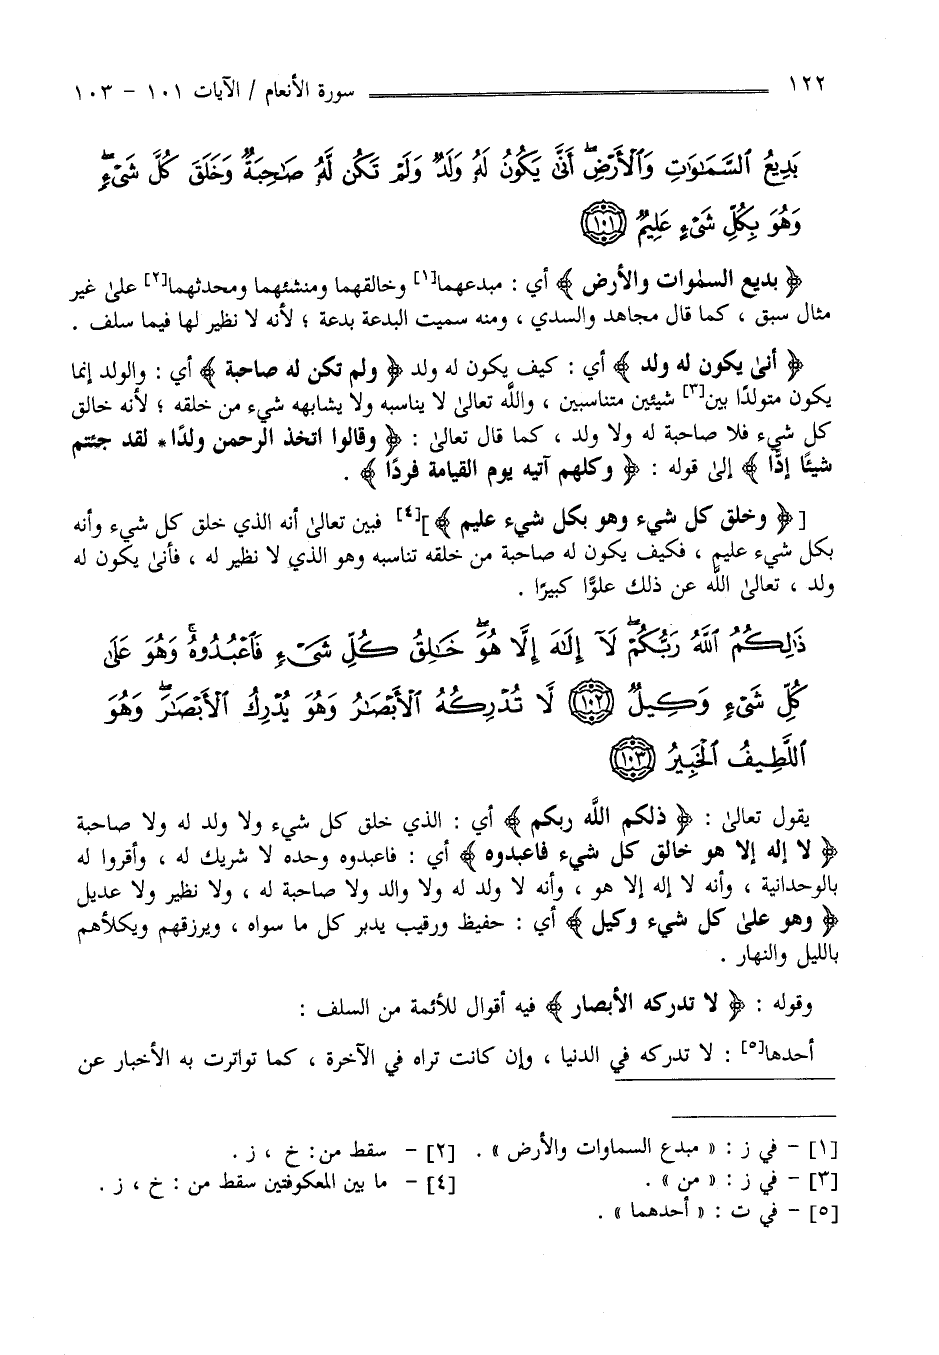 ١٢٢ سورة الأنعام / الآيات ١٠١ - ١٠٣
بَدِيعُ ٱلسَّمَٰوَٰتِ وَٱلْأَرْضِۖ أَنَّىٰ يَكُونُ لَهُۥ وَلَدٌ وَلَمْ تَكُن لَّهُۥ صَٰحِبَةٌۖ وَخَلَقَ كُلَّ شَىْءٍۖ
وَهُوَ بِكُلِّ شَىْءٍ عَلِيمٌ ١٠١
﴿ بديع السمٰوات والأرض ﴾ أي : مبدعهما[١] وخالقهما ومنشئهما ومحدثهما[٢] علىٰ غير
مثال سبق ، كما قال مجاهد والسدي ، ومنه سميت البدعة بدعة ؛ لأنه لا نظير لها فيما سلف .
﴿ أنىٰ يكون له ولد ﴾ أي : كيف يكون له ولد ﴿ ولم تكن له صاحبة ﴾ أي : والولد إنما
يكون متولدًا بين[٣] شيئين متناسبين ، واللَّه تعالىٰ لا يناسبه ولا يشابهه شيء من خلقه ؛ لأنه خالق
كل شيء فلا صاحبة له ولا ولد ، كما قال تعالىٰ : ﴿ وقالوا اتخذ الرحمن ولدًا * لقد جئتم
شيئًا إدًّا ﴾ إلىٰ قوله : ﴿ وكلهم آتيه يوم القيامة فردًا ﴾ .
[﴿ وخلق كل شيء وهو بكل شيء عليم ﴾][٤] فبين تعالىٰ أنه الذي خلق كل شيء وأنه
بكل شيء عليم ، فكيف يكون له صاحبة من خلقه تناسبه وهو الذي لا نظير له ، فأنىٰ يكون له
ولد ، تعالىٰ اللَّه عن ذلك علوًّا كبيرًا .
ذَٰلِكُمُ ٱللَّهُ رَبُّكُمْۖ لَآ إِلَٰهَ إِلَّا هُوَۖ خَٰلِقُ كُلِّ شَىْءٍ فَٱعْبُدُوهُۚ وَهُوَ عَلَىٰ
كُلِّ شَىْءٍ وَكِيلٌ ١٠٢ لَّا تُدْرِكُهُ ٱلْأَبْصَٰرُ وَهُوَ يُدْرِكُ ٱلْأَبْصَٰرَۖ وَهُوَ
ٱللَّطِيفُ ٱلْخَبِيرُ ١٠٣
يقول تعالىٰ : ﴿ ذلكم اللَّه ربكم ﴾ أي : الذي خلق كل شيء ولا ولد له ولا صاحبة
﴿ لا إله إلا هو خالق كل شيء فاعبدوه ﴾ أي : فاعبدوه وحده لا شريك له ، وأقروا له
بالوحدانية ، وأنه لا إله إلا هو ، وأنه لا ولد له ولا والد ولا صاحبة له ، ولا نظير ولا عديل
﴿ وهو علىٰ كل شيء وكيل ﴾ أي : حفيظ ورقيب يدبر كل ما سواه ، ويرزقهم ويكلأهم
بالليل والنهار .
وقوله : ﴿ لا تدركه الأبصار ﴾ فيه أقوال للأئمة من السلف :
أحدها[٥] : لا تدركه في الدنيا ، وإن كانت تراه في الآخرة ، كما تواترت به الأخبار عن
[١] - في ز : « مبدع السماوات والأرض » . [٢] - سقط من : خ ، ز .
[٣] - في ز : « من » . [٤] - ما بين المعكوفتين سقط من : خ ، ز .
[٥] - في ت : « أحدهما » .